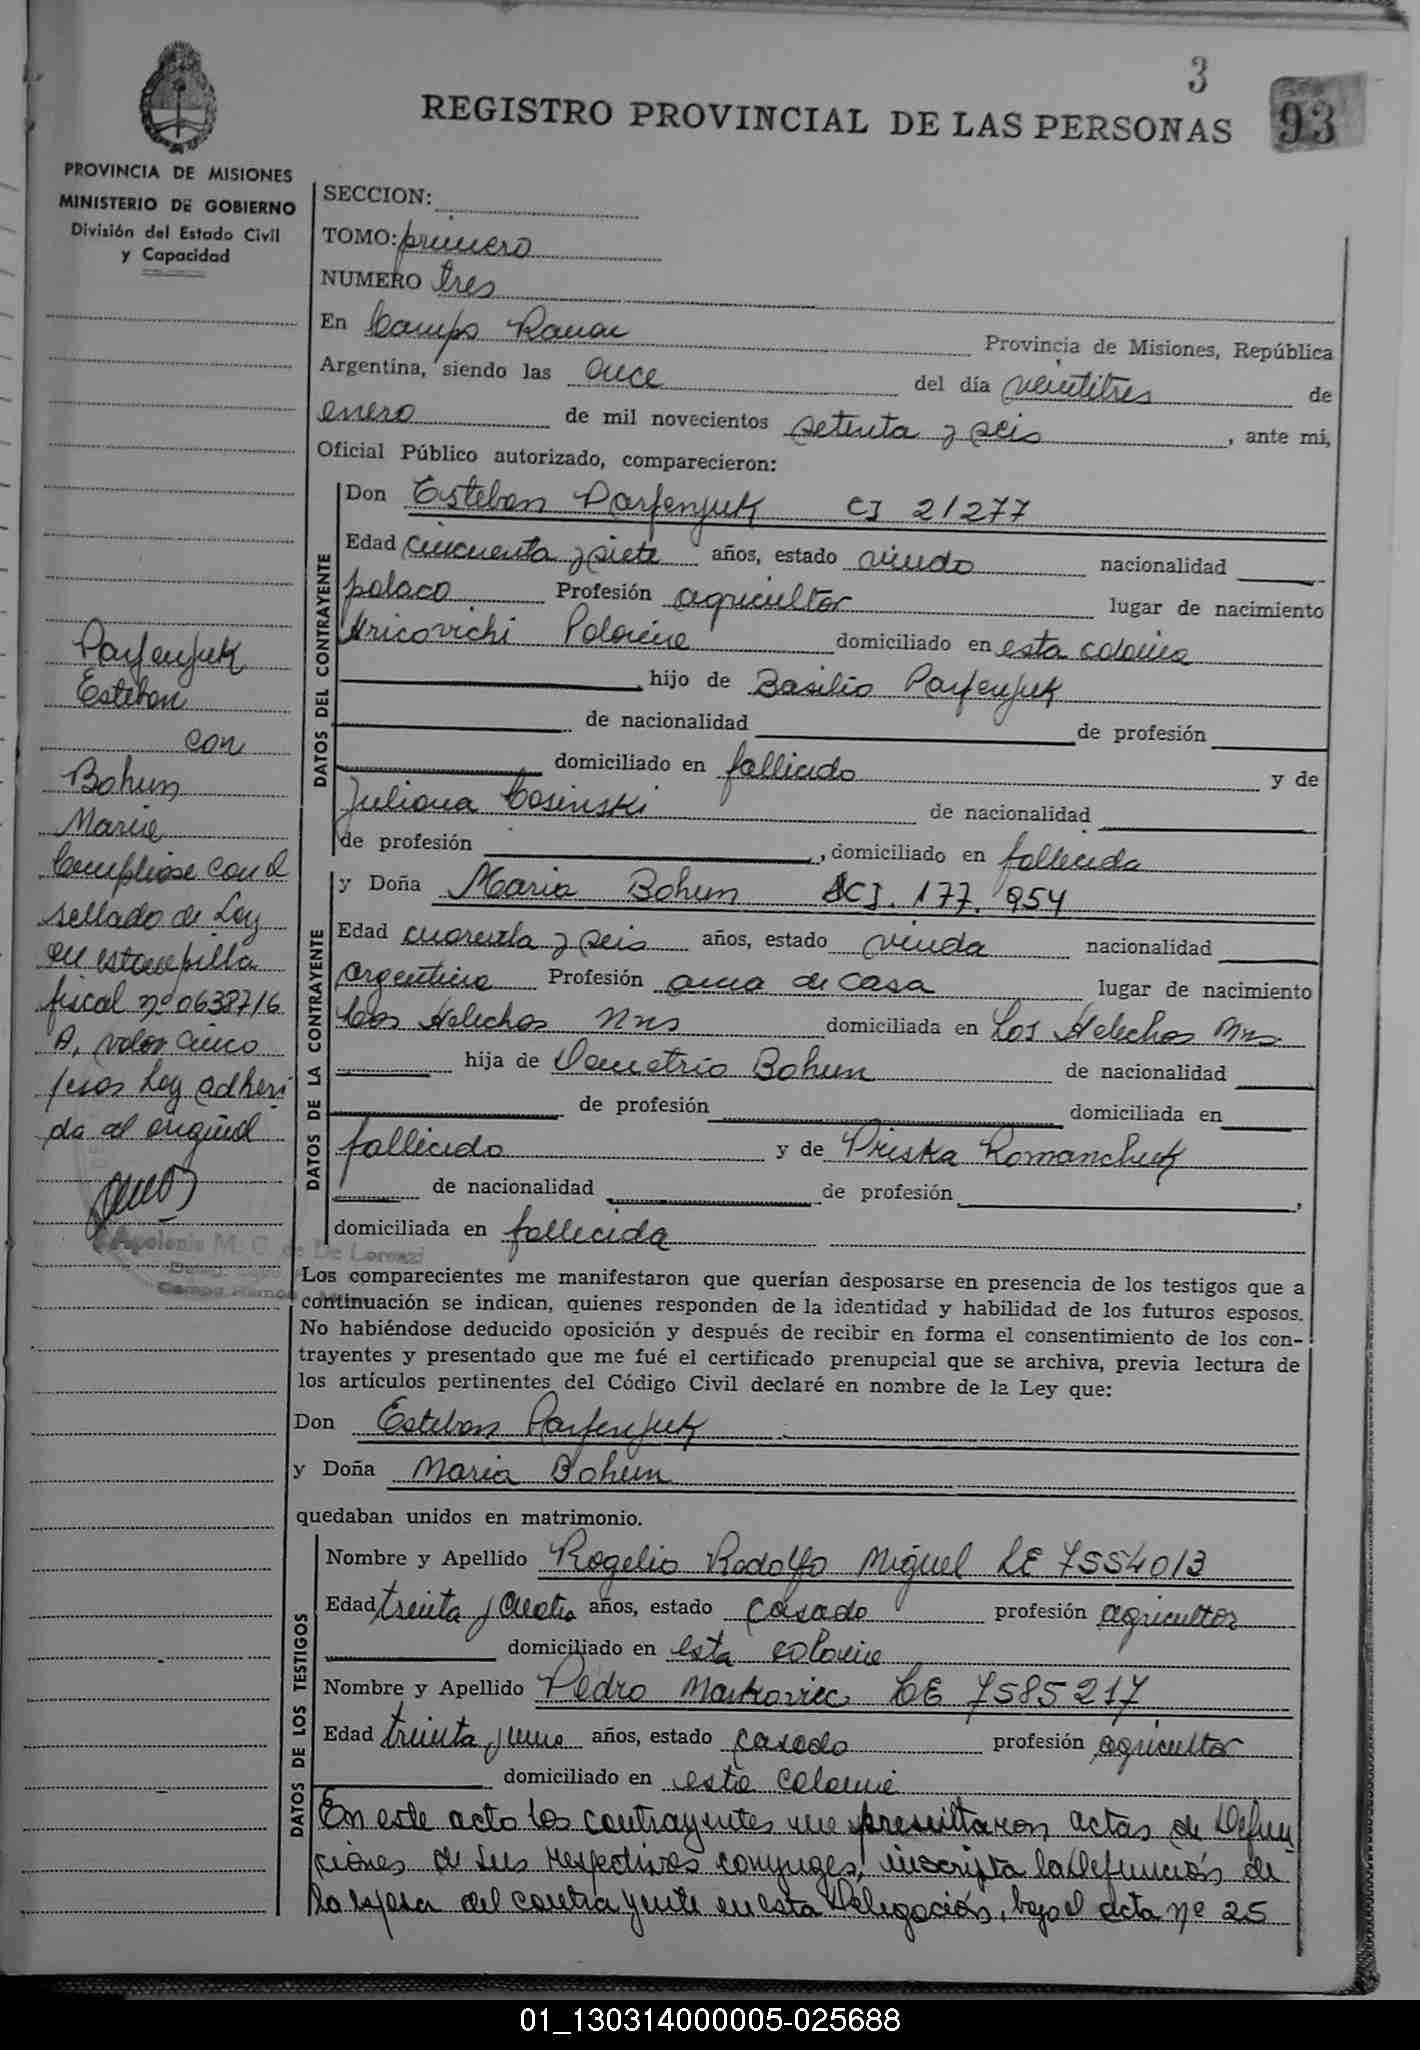 3
REGISTRO PROVINCIAL DE LAS PERSONAS
93
PROVINCIA DE MISIONES
MINISTERIO DE GOBIERNO
División del Estado Civil
y Capacidad
SECCION:
TOMO: primero
NUMERO tres
En Campo Ramon Provincia de Misiones, República
Argentina, siendo las once del día veintitres de
enero de mil novecientos setenta y seis, ante mi,
Oficial Público autorizado, comparecieron:
DATOS DEL CONTRAYENTE
Don Esteban Parfenjuk CI 21277
Edad cincuenta y siete años, estado viudo nacionalidad
polaco Profesión agricultor lugar de nacimiento
Hricovichi Polonia domiciliado en esta colonia
hijo de Basilio Parfenjuk
de nacionalidad de profesión
domiciliado en fallecido y de
Juliana Cosinski de nacionalidad
de profesión , domiciliado en fallecida
DATOS DE LA CONTRAYENTE
y Doña Maria Bohun CI. 177.954
Edad cuarenta y seis años, estado viuda nacionalidad
argentina Profesión ama de casa lugar de nacimiento
Los Helechos Mns domiciliada en Los Helechos Mns
hija de Demetrio Bohun de nacionalidad
de profesión domiciliada en
fallecido y de Priska Romanchuk
de nacionalidad de profesión ,
domiciliada en fallecida
Parfenjuk
Esteban
con
Bohun
Maria
Cumpliose con el
sellado de Ley
en estampilla
fiscal nº 0638716
A, valor cinco
pesos Ley adheri
da al original
Apolonia M. C. de De Lorenzi
Campo Ramon
Los comparecientes me manifestaron que querían desposarse en presencia de los testigos que a
continuación se indican, quienes responden de la identidad y habilidad de los futuros esposos.
No habiéndose deducido oposición y después de recibir en forma el consentimiento de los con-
trayentes y presentado que me fué el certificado prenupcial que se archiva, previa lectura de
los artículos pertinentes del Código Civil declaré en nombre de la Ley que:
Don Esteban Parfenjuk
y Doña Maria Bohun
quedaban unidos en matrimonio.
DATOS DE LOS TESTIGOS
Nombre y Apellido Rogelio Rodolfo Miguel LE 7554013
Edad treinta y cuatro años, estado casado profesión agricultor
domiciliado en esta colonia
Nombre y Apellido Pedro Markoviec LE 7585217
Edad treinta y uno años, estado casado profesión agricultor
domiciliado en esta colonia
En este acto los contrayentes me presentaron actas de Defun
ciones de sus respectivos conyuges, inscripta la defunción de
la esposa del contrayente en esta Delegación, bajo el acta nº 25
01_130314000005-025688